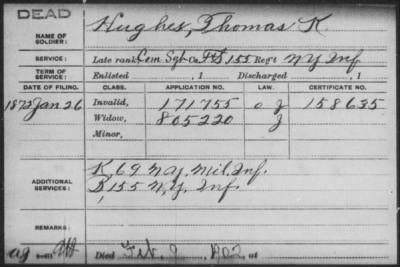 DEAD
NAME OF SOLDIER: Hughes, Thomas K.
SERVICE: Late rank Com Sgt Co. F&S 155 Reg't N.Y. Inf
TERM OF SERVICE: Enlisted , 1 Discharged , 1
DATE OF FILING. CLASS. APPLICATION NO. LAW. CERTIFICATE NO.
1872 Jan 26 Invalid, 171755 158635
Widow, 805220
Minor,
ADDITIONAL SERVICES: K, 69 N.Y. Mil. Inf.
155 N.Y. Inf.
REMARKS:
Died Feb. 9, 1902, at